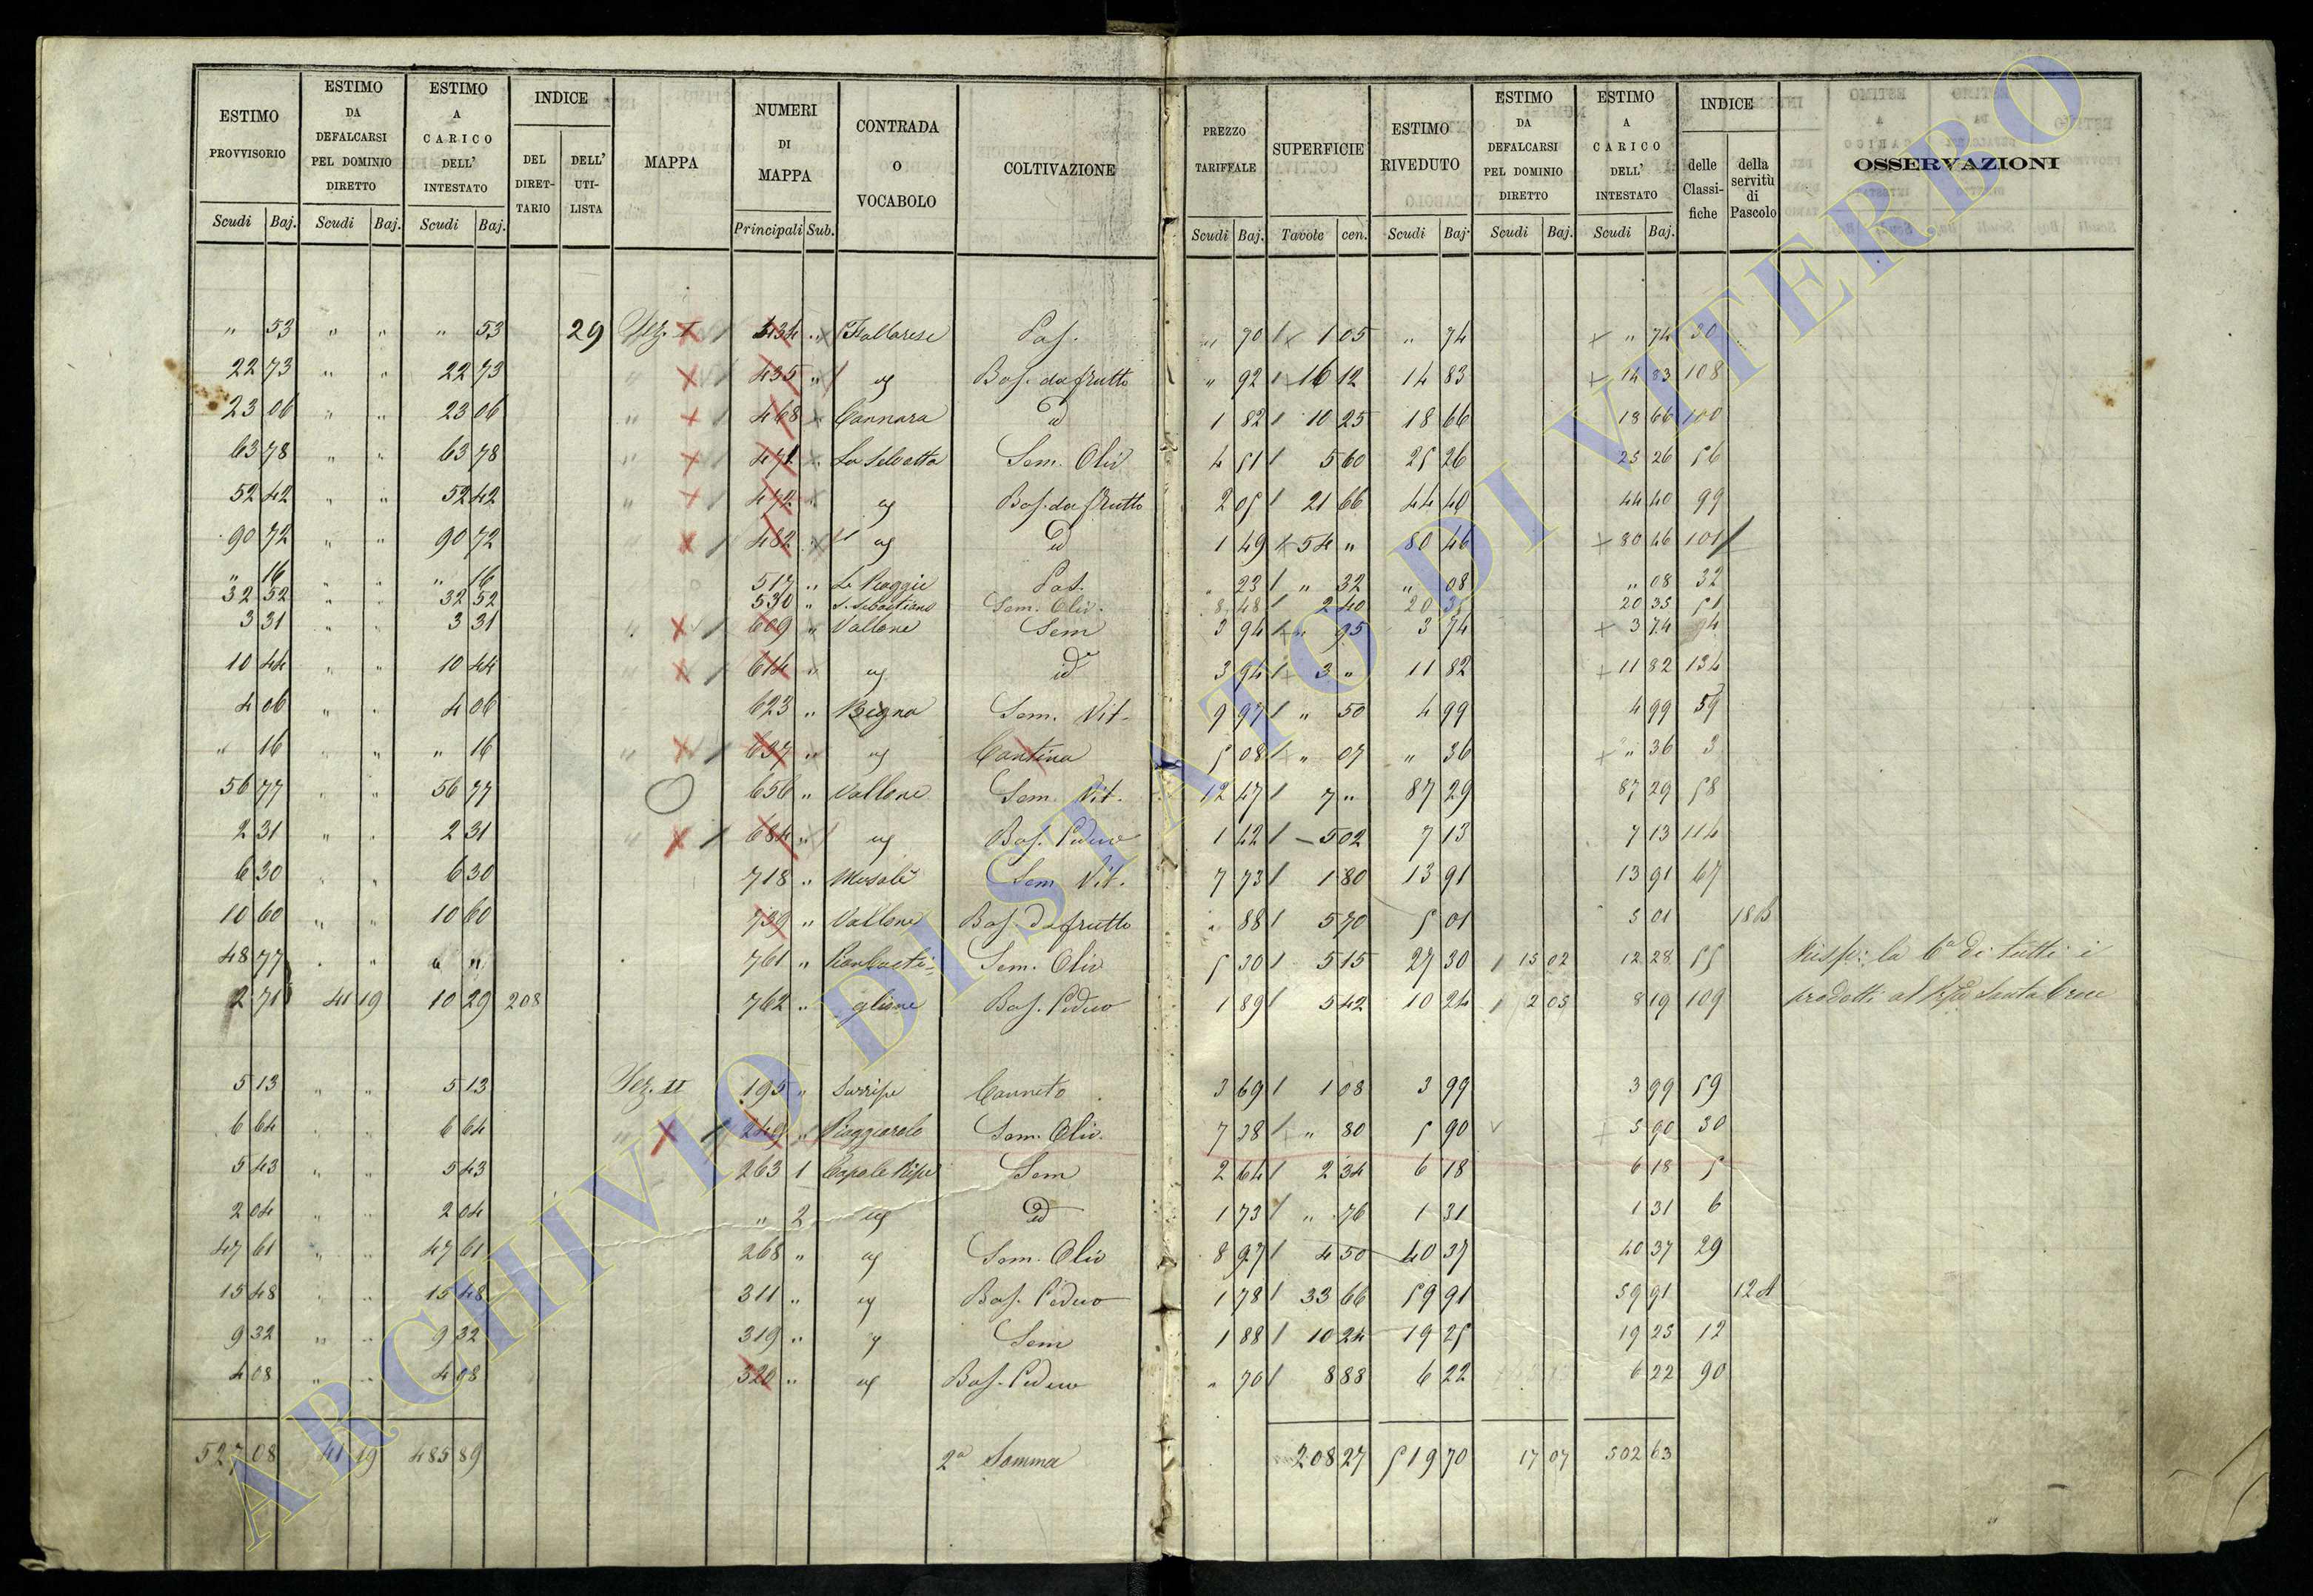 ESTIMO PROVVISORIO | ESTIMO DA DEFALCARSI PEL DOMINIO DIRETTO | ESTIMO A CARICO DELL' INTESTATO | INDICE | MAPPA | NUMERI DI MAPPA | CONTRADA O VOCABOLO | COLTIVAZIONE | PREZZO TARIFFALE | SUPERFICIE | ESTIMO RIVEDUTO | ESTIMO DA DEFALCARSI PEL DOMINIO DIRETTO | ESTIMO A CARICO DELL' INTESTATO | INDICE | OSSERVAZIONI
DEL DIRETTARIO | DELL' UTILISTA | delle Classifiche | della servitù di Pascolo
Scudi | Baj. | Scudi | Baj. | Scudi | Baj. | Principali | Sub. | Scudi | Baj. | Tavole | cen. | Scudi | Baj. | Scudi | Baj. | Scudi | Baj.
" 53 " " " 53 29 Sez. I 434 " Pas. " 70 1 05 " 74 " 74 30
22 73 " " 22 73 " 435 " Bos. da frutto " 92 16 12 14 83 14 83 108
23 06 " " 23 06 " 468 Cannara id 1 82 10 25 18 66 18 66 100
63 78 " " 63 78 " 471 " La Selvetta Sem. Oliv 4 51 5 60 25 26 25 26 56
52 42 " " 52 42 " 472 " Bos. da frutto 2 05 21 66 44 40 44 40 99
90 72 " " 90 72 " 482 " id 1 49 54 " 80 46 80 46 101
" 16 " " " 16 517 " Le Piaggie Pas. " 23 " 32 " 08 " 08 32
32 52 " " 32 52 530 " S. Sebastiano Sem. Oliv. 8 48 2 40 20 35 20 35 51
3 31 " " 3 31 " 609 " Vallone Sem 3 94 " 95 3 74 3 74
10 44 " " 10 44 " 614 " id 3 94 3 " 11 82 11 82 134
4 06 " " 4 06 623 " Sem. Vit. 9 97 " 50 4 99 4 99 59
" 16 " " " 16 " 637 " Cantina 5 08 " 07 " 36 " 36 3
56 77 " " 56 77 656 " Vallone Sem. Vit. 12 47 7 " 87 29 87 29 58
2 31 " " 2 31 " 684 " Bos. Ceduo 1 42 5 02 7 13 7 13 114
6 30 " " 6 30 718 " Sem. Vit. 7 73 1 80 13 91 13 91 67
10 60 " " 10 60 739 " Vallone Bos. da frutto " 88 5 70 5 01 5 01 18 B
48 77 " " " " 761 " Sem. Oliv 5 30 5 15 27 30 15 02 12 28 55 Risp: la 6a di tutti i
2 71 41 19 10 29 208 762 " glione Bos. Ceduo 1 89 5 42 10 24 2 05 8 19 109 prodotti al Santa Croce
5 13 " " 5 13 Sez. II 195 " Surripe Canneto 3 69 1 08 3 99 3 99 59
6 64 " " 6 64 " 249 " Piaggiarelo Sem. Oliv. 7 38 " 80 5 90 5 90 30
5 43 " " 5 43 263 1 Sem 2 64 2 34 6 18 6 18 5
2 04 " " 2 04 " 2 id 1 73 " 76 1 31 1 31 6
47 61 " " 47 61 268 " Sem. Oliv 8 97 4 50 40 37 40 37 29
15 48 " " 15 48 311 " Bos. Ceduo 1 78 33 66 59 91 59 91 12 A
9 32 " " 9 32 319 " Sem 1 88 10 24 19 25 19 25 12
4 08 " " 4 08 320 " Bos. Ceduo " 70 8 88 6 22 6 22 90
527 08 41 19 485 89 2a Somma 208 27 519 70 17 07 502 63
ARCHIVIO DI STATO DI VITERBO